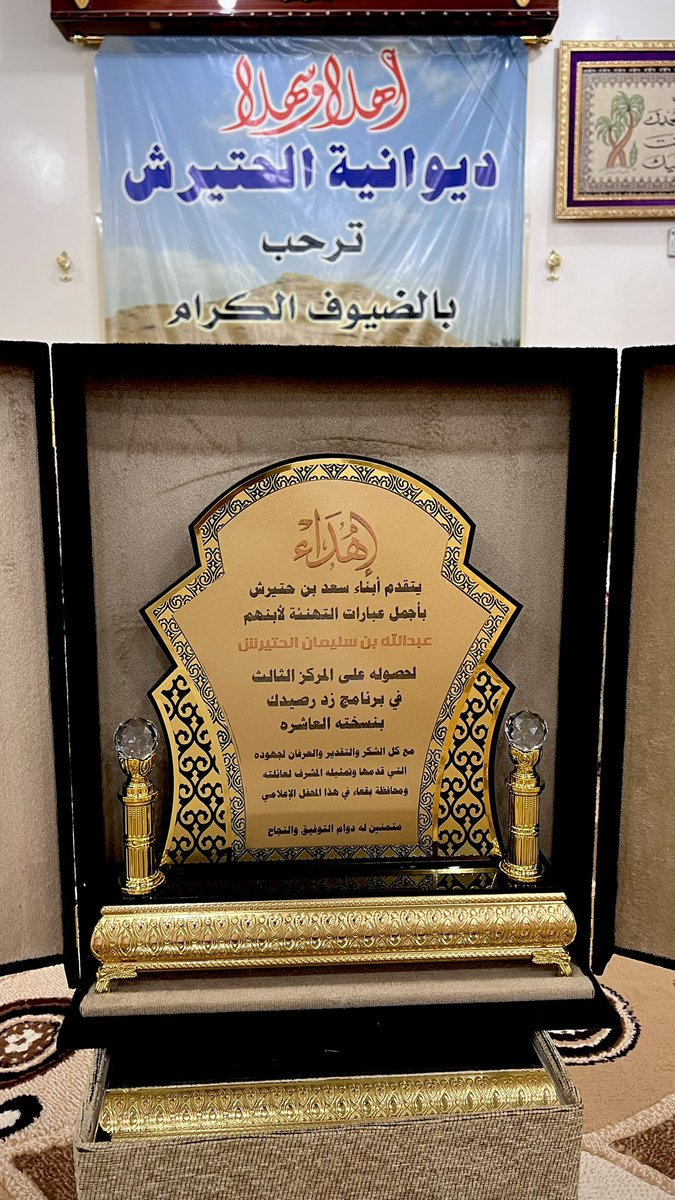 أهلا وسهلا
ديوانية الحتيرش
ترحب
بالضيوف الكرام
إهْدَاءْ
يتقدم أبناء سعد بن حتيرش
بأجمل عبارات التهنئة لأبنهم
عبدالله بن سليمان الحتيرش
لحصوله على المركز الثالث
في برنامج زد رصيدك
بنسخته العاشره
مع كل الشكر والتقدير والعرفان لجهوده
التي قدمها وتمثيله المشرف لعائلته
ومحافظة بقعاء في هذا المحفل الإعلامي
متمنين له دوام التوفيق والنجاح